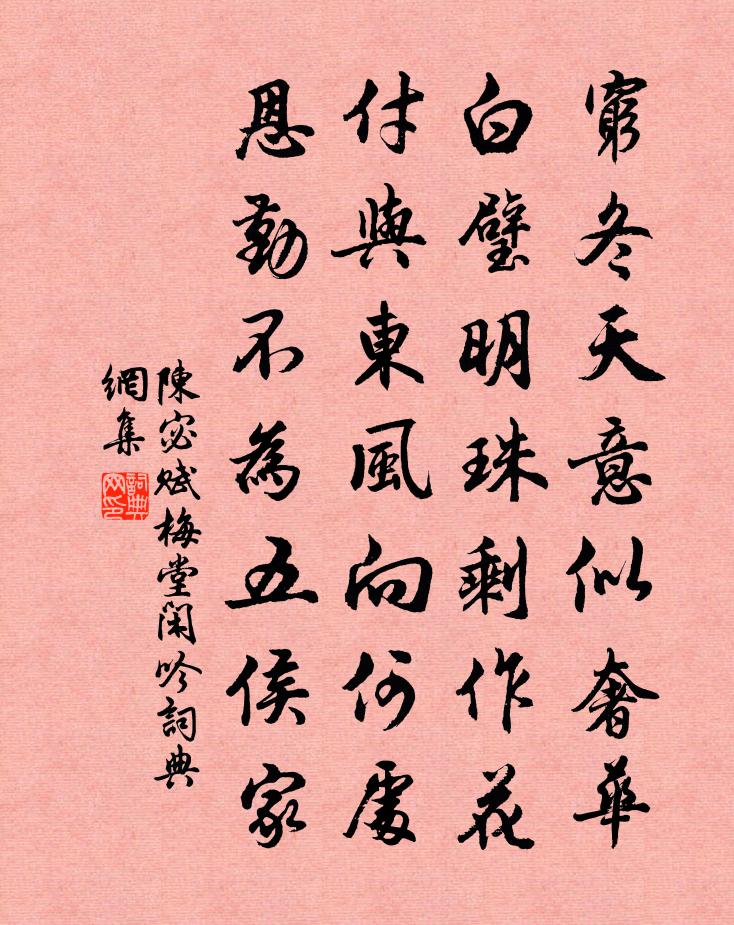 窮冬天意似奢華
白璧明珠剩作花
付與東風向何處
恩勤不為五侯家
陳宓賦梅堂閑吟詞典
網集
詞典
网印